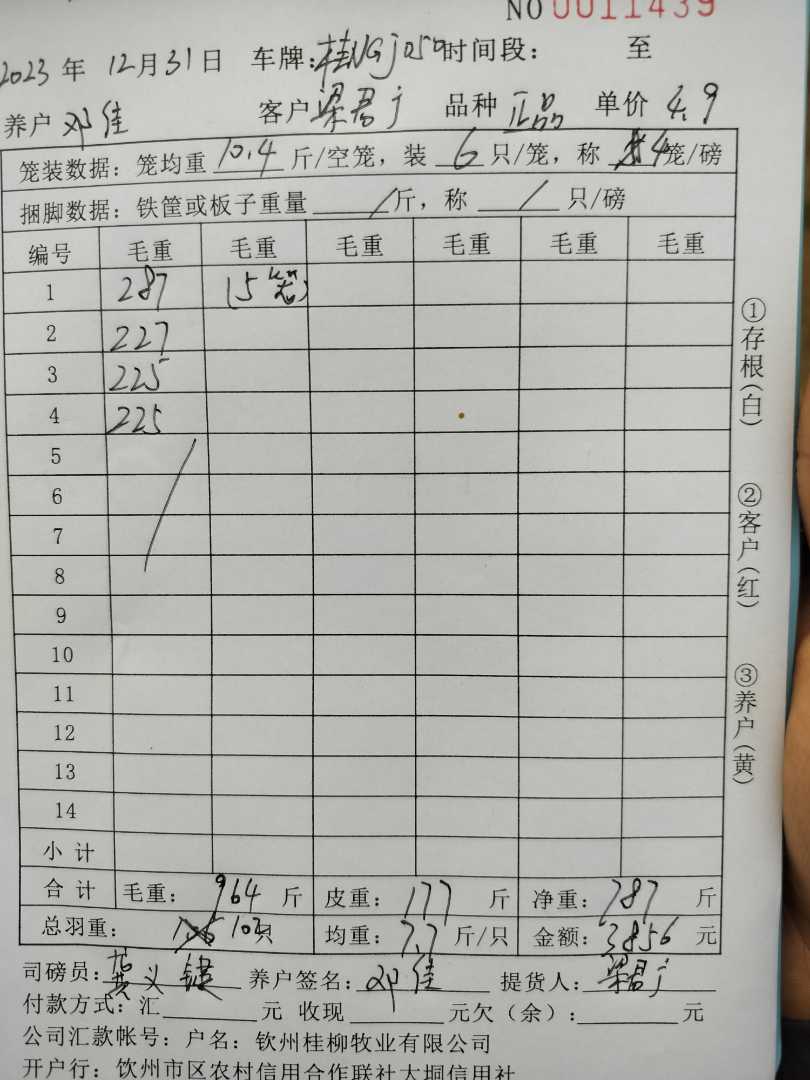 NO 0011439
2023 年 12月31日 车牌:桂NGJ050 时间段: 至
养户 邓佳 客户 梁君广 品种 正品 单价 4.9
笼装数据:笼均重 10.4 斤/空笼,装 6 只/笼,称 4 笼/磅
捆脚数据:铁筐或板子重量 / 斤,称 / 只/磅
编号 毛重 毛重 毛重 毛重 毛重 毛重
1 287 (5笼)
2 227
3 225
4 225
5
6
7
8
9
10
11
12
13
14
小 计
合 计 毛重: 964 斤 皮重: 177 斤 净重: 787 斤
总羽重: 102 只 均重: 7.7 斤/只 金额: 3856 元
司磅员: 黄义键 养户签名: 邓佳 提货人: 梁君广
付款方式:汇 元 收现 元欠(余): 元
公司汇款帐号:户名:钦州桂柳牧业有限公司
开户行:钦州市区农村信用合作联社大垌信用社
①存根(白)
②客户(红)
③养户(黄)